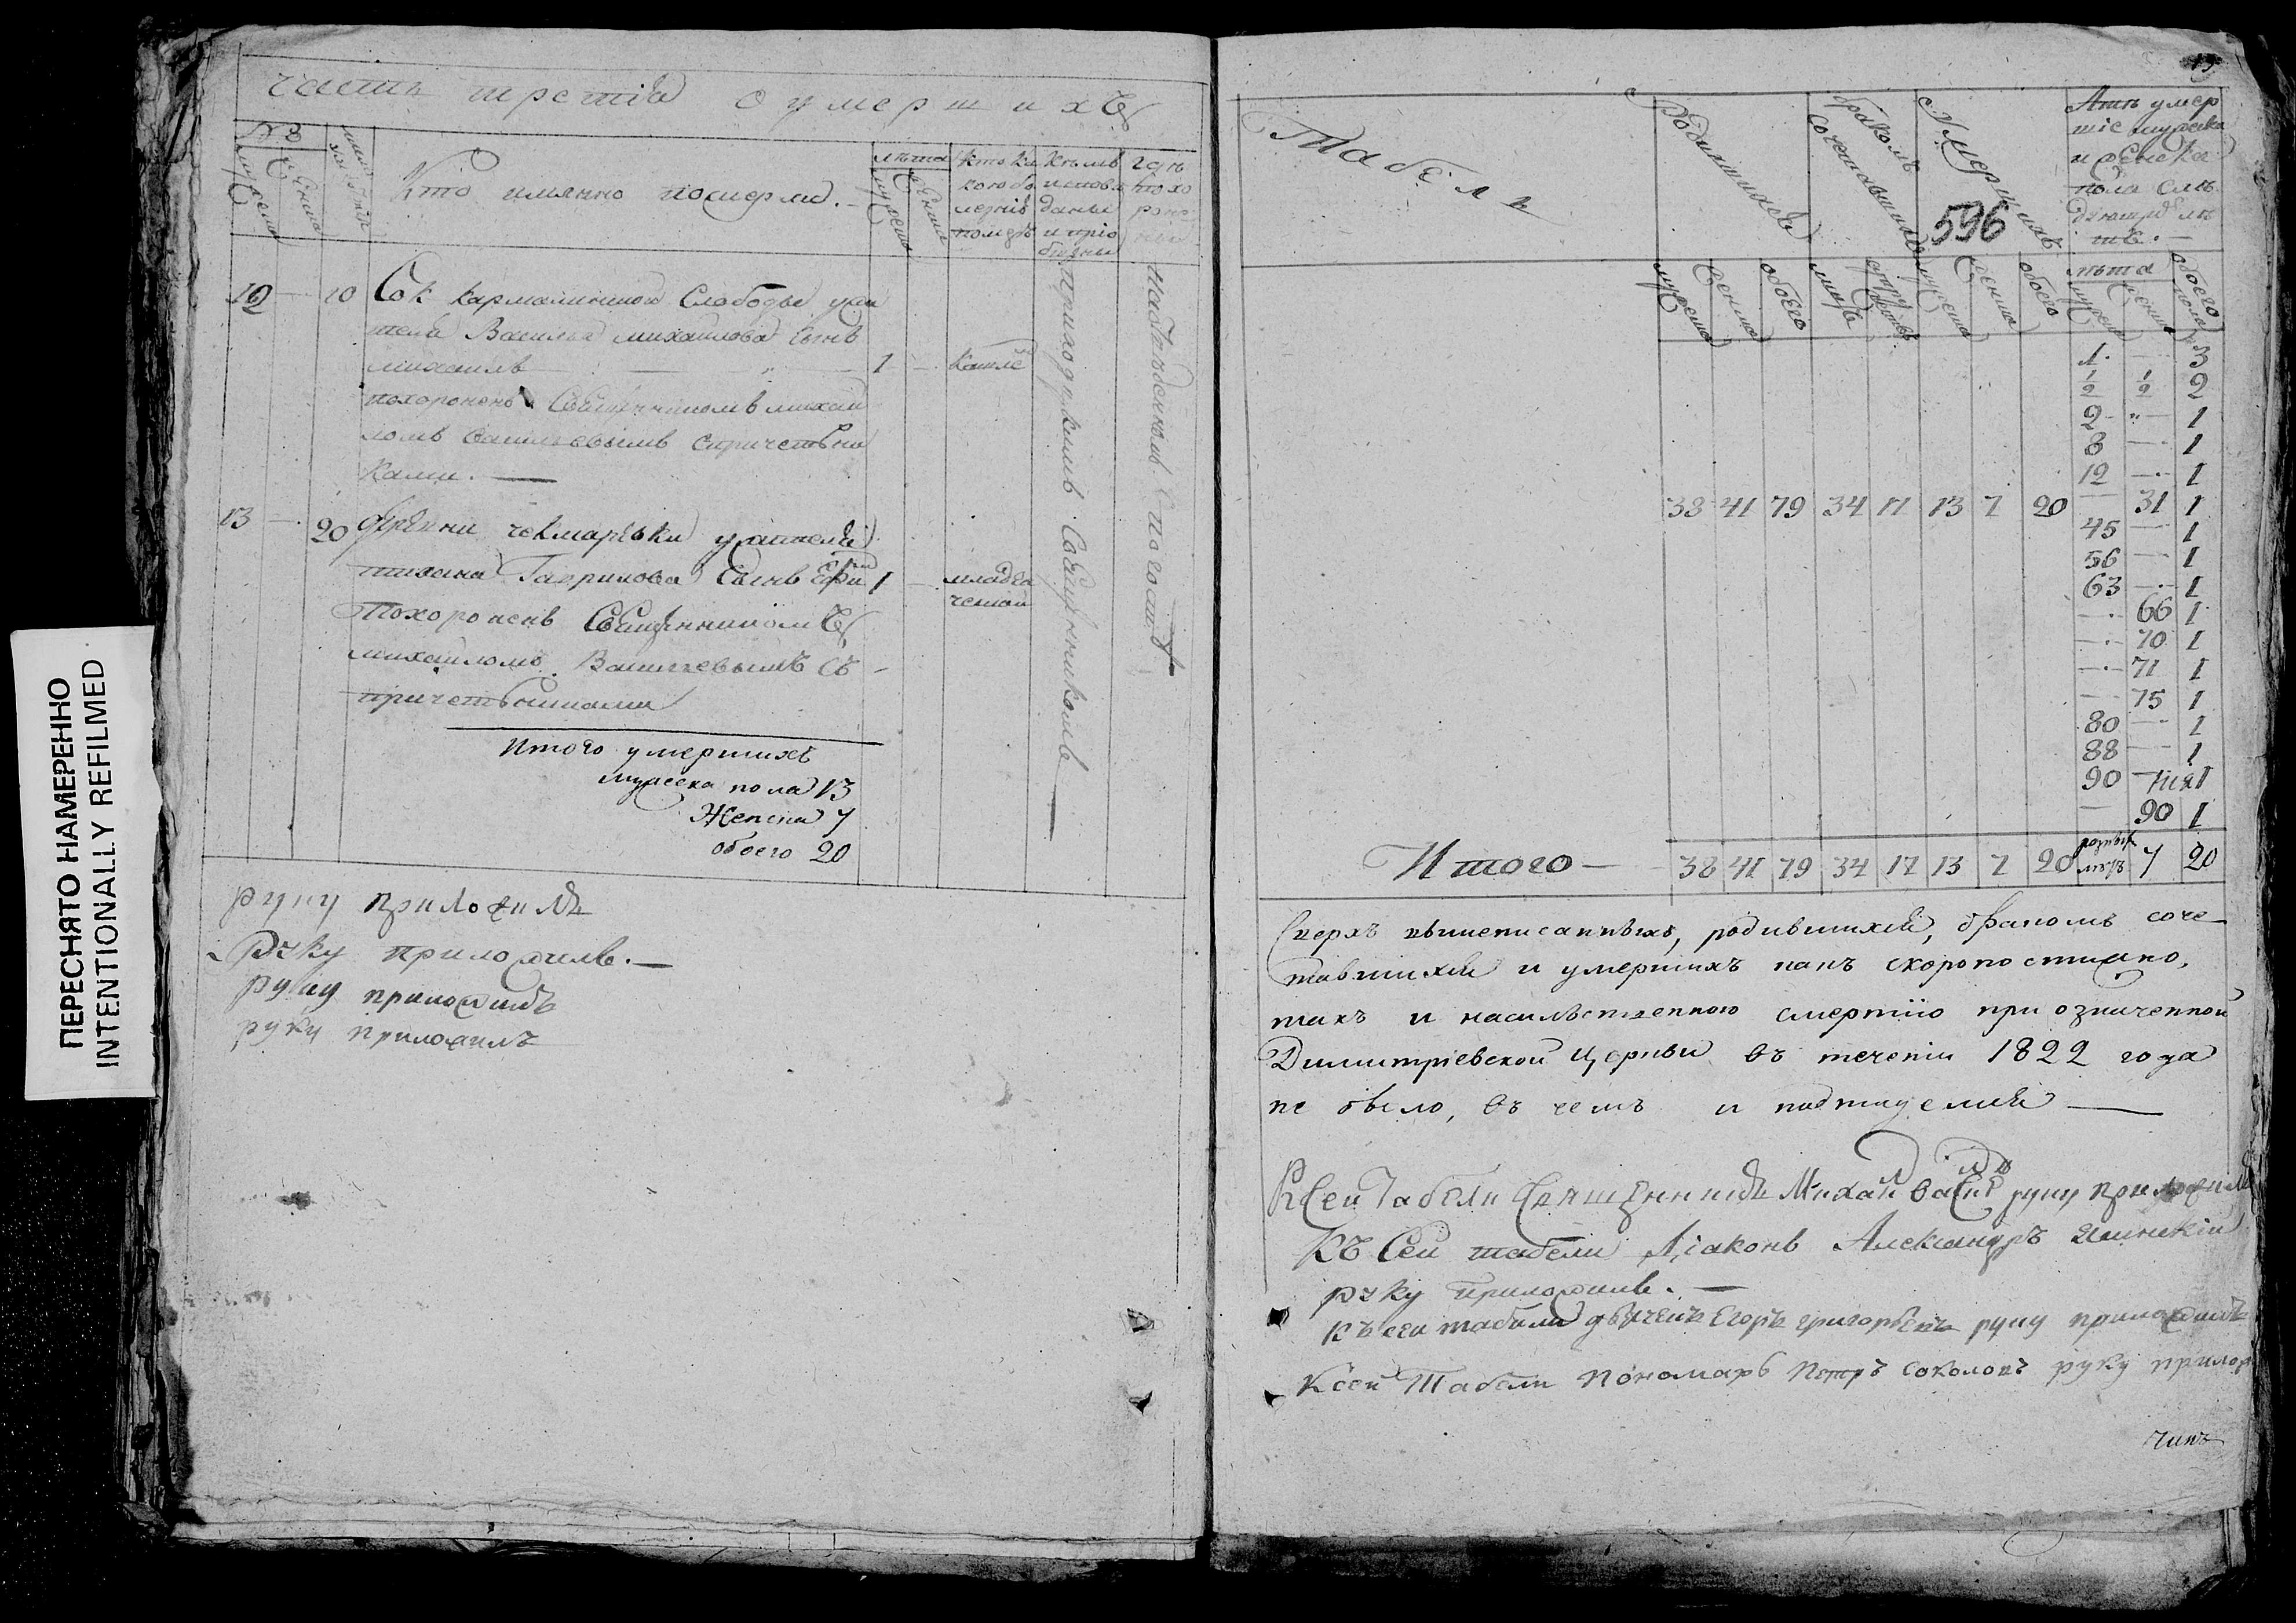 ПЕРЕСНЯТО НАМЕРЕННО
INTENTIONALLY REFILMED
часть третіа о умершихъ
№
мужеска
женска
Кто имянно померли.
лѣта
мужеска
женска
кто ка
кою бо
лезнію
померъ
кѣмъ
исповѣ
даны
и пріо
бщены
гдѣ
похо
роне
ны
12 — 10 Сок кармалинской Слободы учи
теля Василья михаилова сынъ
михаилъ — 1 — кашле
похороненъ Священникомъ михаи
ломъ Васильевымъ спричетьни
ками. —
приходскимъ Священникомъ —
13 — 20 чекмаревки
тихона Гаврилова Сынъ 1 — младѣ
ческой
Похороненъ Священникомъ
михаиломъ Васильевымъ съ
причетьниками
Итого умершихъ
мужеска пола 13
Женска 7
обоего 20
руку приложилъ
Руку приложилъ. —
руку приложилъ
руку приложилъ
Табель
Родившихся
бракомъ
сочетавшихся
Умершихъ
596
Лѣтъ умер
шіе мужеска
и женска
пола слѣ
дующія лѣ
та. —
мужеска
женска
обоего
мужеска
женска
обоего
лѣта
мужеска
женска
обоего
пола
1 — 3
1/2 1/2 2
2 — 1
8 — 1
12 — 1
38 41 79 34 17 13 7 20 — 31 1
45 — 1
56 — 1
63 — 1
— 66 1
— 70 1
— 71 1
— 75 1
80 — 1
88 — 1
90 — 1
— 90 1
Итого — 38 41 79 34 17 13 7 20 7 20
Сверхъ вышеписанныхъ, родившихся, бракомъ соче-
тавшихся и умершихъ какъ скоропостижно,
такъ и насильственною смертію при означенной
Димитріевской церкви въ теченіи 1822 года
не было, въ чемъ и подтмуемся —
К Сей Табели Священникъ Михаил Васил руку приложилъ
Къ Сей табели Діаконъ Александръ
руку приложилъ. —
Къ сеи табели дьячекъ Егоръ григорьевъ руку приложилъ
К сеи Табели пономарь Петръ соколовъ руку прилож